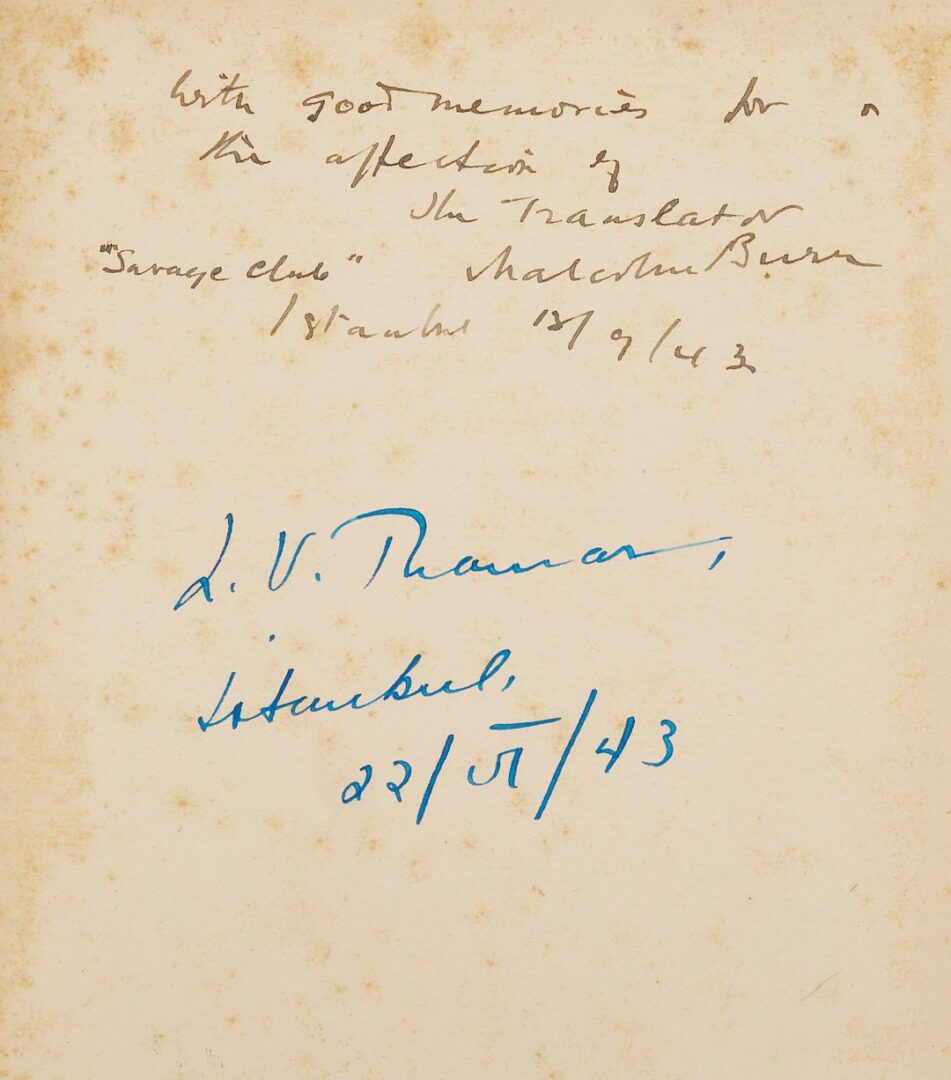 With good memories for
the affection of
the Translator
"Savage Club" Malcolm Burr
Istanbul 18/9/43
L. V. Thomas,
Istanbul,
22/VI/43